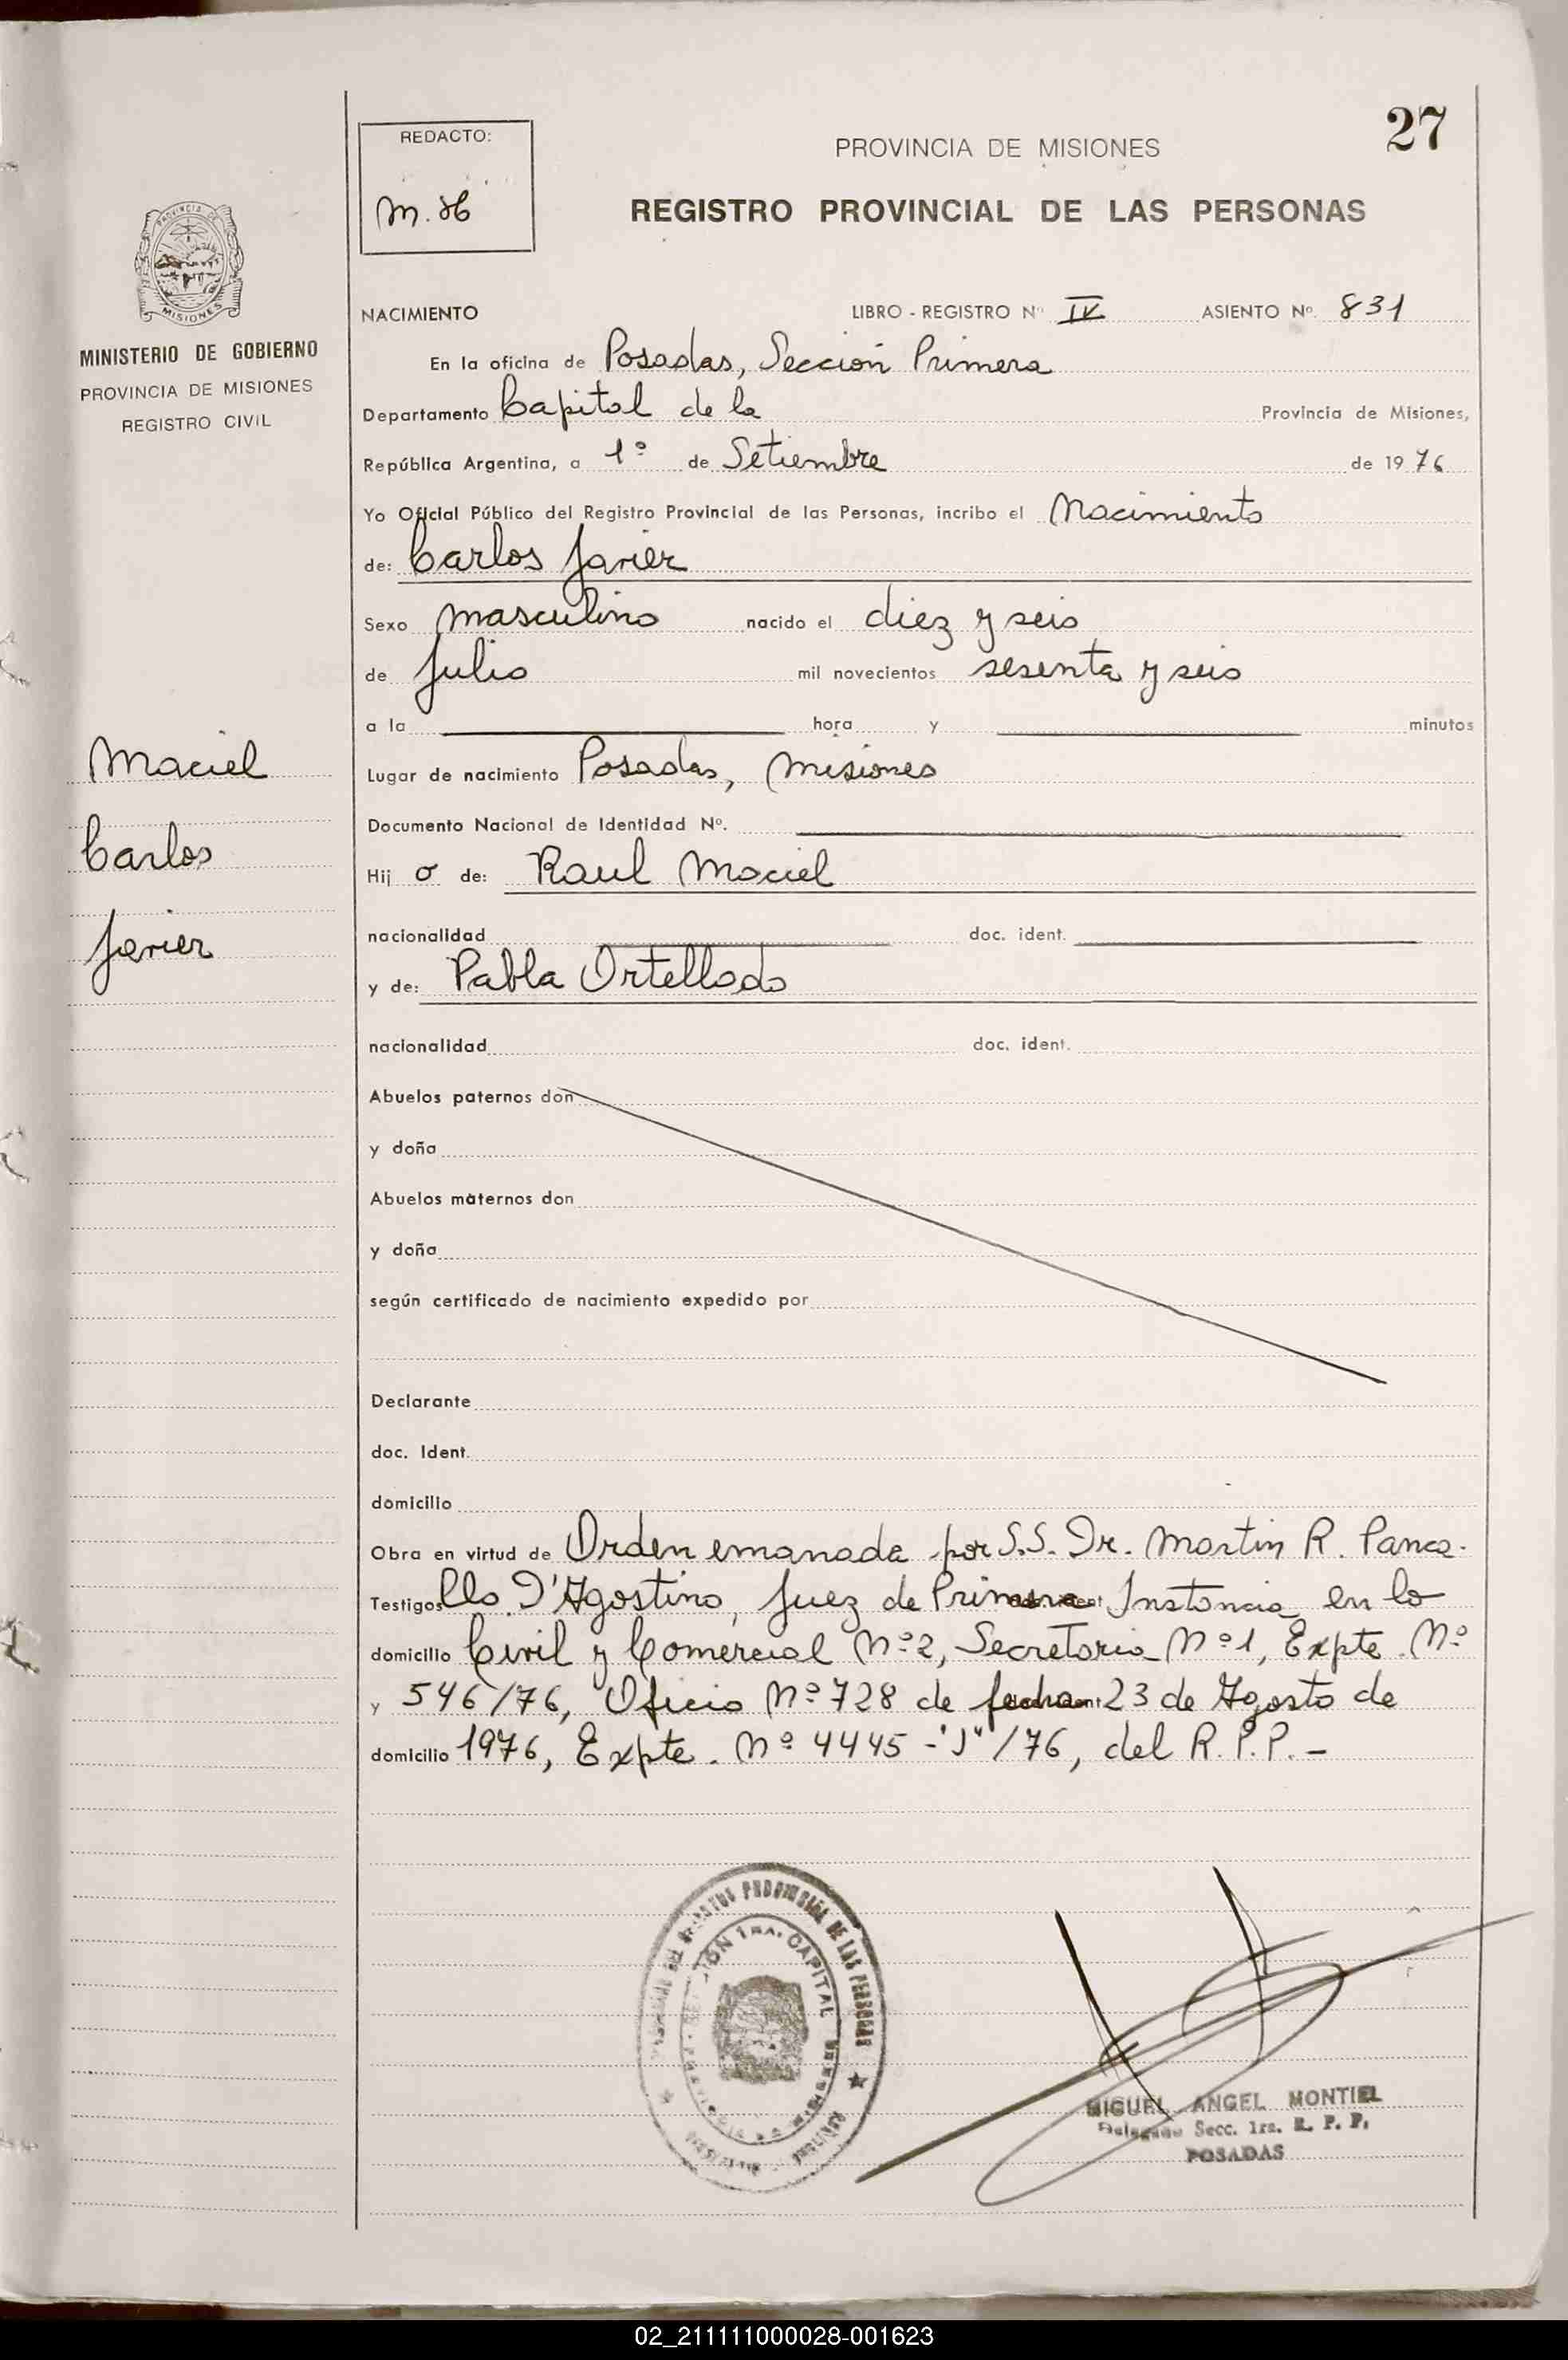 27
REDACTO:
PROVINCIA DE MISIONES
REGISTRO PROVINCIAL DE LAS PERSONAS
PROVINCIA DE
MISIONES
MINISTERIO DE GOBIERNO
PROVINCIA DE MISIONES
REGISTRO CIVIL
NACIMIENTO LIBRO - REGISTRO Nº IV ASIENTO Nº 831
En la oficina de Posadas, Sección Primera
Departamento Capital de la Provincia de Misiones,
República Argentina, a 1º de Setiembre de 1976
Yo Oficial Público del Registro Provincial de las Personas, incribo el Nacimiento
de: Carlos Javier
Sexo masculino nacido el diez y seis
de Julio mil novecientos sesenta y seis
a la hora y minutos
Maciel
Carlos
Javier
Lugar de nacimiento Posadas, Misiones
Documento Nacional de Identidad Nº.
Hij o de: Raul Maciel
nacionalidad doc. ident.
y de: Pabla Ortellado
nacionalidad doc. ident.
Abuelos paternos don
y doña
Abuelos maternos don
y doña
según certificado de nacimiento expedido por
Declarante
doc. Ident.
domicilio
Obra en virtud de Orden emanada por S.S. Dr. Martin R. Panca-
Testigos llo D'Agostino, Juez de Primera Instancia en lo
domicilio Civil y Comercial Nº 2, Secretaria Nº 1, Expte. Nº
y 546/76, Oficio Nº 728 de fecha 23 de Agosto de
domicilio 1976, Expte. Nº 4445-"J"/76, del R.P.P.-
DE LAS PERSONAS
1RA. CAPITAL
MIGUEL ANGEL MONTIEL
Delegado Secc. 1ra. R. P. P.
POSADAS
02_211111000028-001623